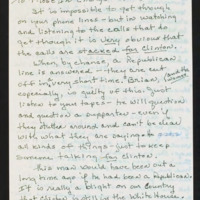 It is impossible to get through
on your phone lines - but in watching
and listening to the calls that do
get through it is very obvious that
the calls are stacked for Clinton.
When, by chance, a Republican
line is answered - they are cut
off in very short time. Brian, (and the
especially, is guilty of this. Just
listen to your tapes - he will question
and question a supporter - even if
they stutter around and can't deal
with what they are saying to
all kinds of things - just to keep
someone talking for Clinton.
This man would have been out a
long time ago if he had been a republican.
It is really a blight on our country
that Clinton is still in the White House.